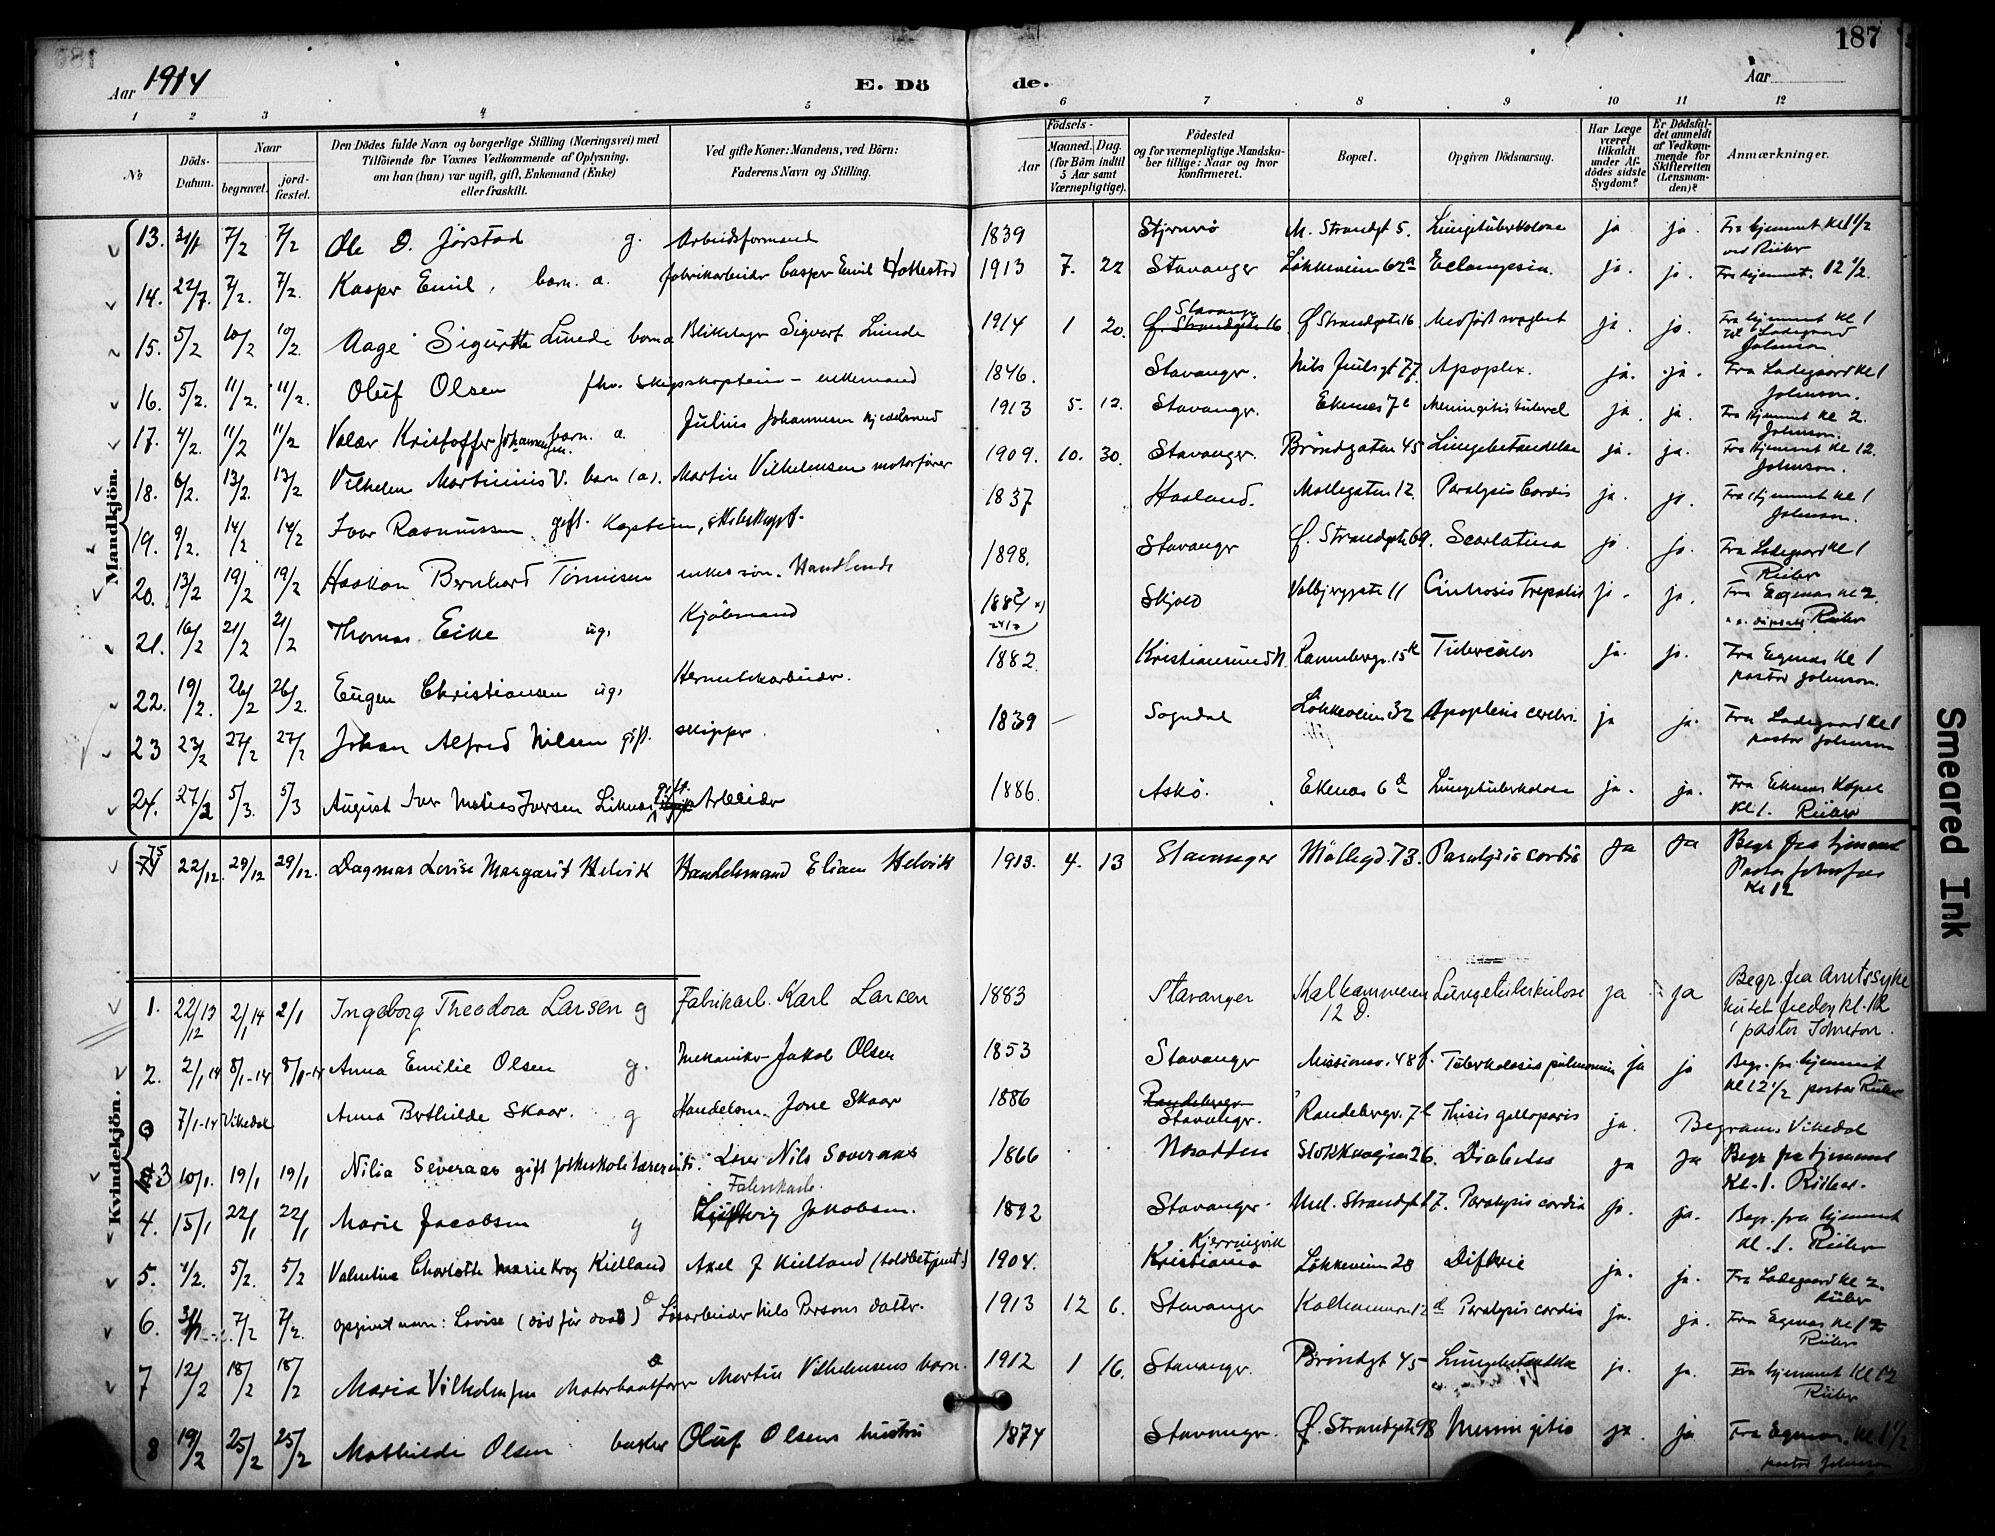 187
Aar 1914
E. Döde.
Aar
1 2 3 4 5 6 7 8 9 10 11 12
№
Döds-Datum.
Naar
begravet.
jordfæstet.
Den Dödes fulde Navn og borgerlige Stilling (Næringsvei) med
Tilföiende for Voxnes Vedkommende af Oplysning,
om han (hun) var ugift, gift, Enkemand (Enke)
eller fraskilt.
Ved gifte Koner: Mandens, ved Börn:
Faderens Navn og Stilling.
Födsels-
Aar
Maaned. Dag.
(for Börn indtil
5 Aar samt
Værnepligtige).
Födested
og for værnepligtige Mandska-
ber tillige: Naar og hvor
konfirmeret.
Bopæl.
Opgiven Dödsaarsag.
Har Læge
været
tilkaldt
under Af-
dödes sidste
Sygdom?
Er Dödsfal-
det anmeldt
af Vedkom-
mende for
Skifteretten
(Lensman-
den)?
Anmærkninger.
Mandkjön.
13. 31/1 7/2 7/2 Ole D. Jörstad g. Arbeidsformand 1839 Stjernerö M. Strandgt 5. Lungetuberkulose ja ja. Fra hjemmet kl 1 1/2
ved Riiber
14. 22/7. 7/2. 7/2. Kasper Emil, barn. a. fabrikarbeider Casper Emil Hollestad 1913 7. 22 Stavanger Lökkeveien 62a Eclampsia. ja. ja. Fra hjemmet. 12 1/2.
15. 5/2 10/2 10/2. Aage Sigurth Lunde barn a Blikslager Sigvart Lunde 1914 1 20. Stavanger Ø Strandgate 16 Ø Strandgate 16 Medfödt svaghet ja. ja. Fra hjemmet kl 1
Johnson.
16. 5/2. 11/2. 11/2. Oluf Olsen fhv. Skipskaptein - enkemand 1846. Stavanger. Nils Juulsgt 77. Apoplex. ja. ja. Fra Ladegaard kl 1
Johnson.
17. 4/2. 11/2 11/2 Valdr Kristoffer Johannessen. barn. a. Julius Johannesen kjedelsmed 1913 5. 12. Stavanger. Ekenes 7c Meningitis tubercul ja. ja. Fra hjemmet kl 2.
Johnson.
18. 6/2. 13/2. 13/2. Vilhelm Martinius V. barn (a). Martin Vilhelmsen motorförer 1909. 10. 30. Stavanger. Bröndgaten 45 Lungebetændelse ja. ja. Fra hjemmet kl 12.
Johnson.
19. 9/2. 14/2 14/2 Ivar Rasmussen gift. Kaptein, skibskapt. 1837 Haaland. Möllegaten 12. Paralysis Cordis ja ja. Fra hjemmet kl 1
Johnson.
20. 13/2 19/2 19/2 Haakon Bernhard Tönnesen enkes sön. Handlende 1898. Stavanger Ø. Strandgate 69. Scarlatina ja ja. Fra Ladegaard kl 1
Riiber
21. 16/2 21/2 21/2 Thomas Eike ug. Kjöbmand Skjold Valbjerggate 11 ja. ja. Fra Egenes kl 2.
Riiber
22. 19/2. 26/2 26/2. Eugen Christiansen ug. Hermetikarbeider. 1882. Kristiansund N. Rannebergv. 15 Tuberculos ja. ja. Fra Egenes kl 1
pastor Johnson.
23 23/2 27/2 27/2 Johan Alfred Nilsen gift. skipper. 1839 Sogndal Lökkeveien 32 Apoplexis cerebri ja ja. Fra Ladegaard kl 1
pastor Johnson
24. 27/2 5/3. 5/3 August Iver Mathias Iversen gift. Arbeider 1886. Askö. Ekenes 6d Lungetuberkulose ja. ja. Fra Ekenes Kapel
kl 1. Riiber
75 22/12. 29/12 29/12. Dagmar Lovise Margarit Helvik Handelsmand Elian Helvik 1913. 4. 13 Stavanger Möllegd. 73. Paralysis cordis ja ja Begr. fra hjemmet
Pastor
kl 12
Kvindekjön.
1. 22/12 13 2/1 14 2/1 Ingeborg Theodora Larsen g Fabrikarb. Karl Larsen 1883 Stavanger Kalhammeren
12 D. Lungetuberkulose ja ja Begr. fra Amtssyke
kl. 12
pastor Johnson.
2. 2/1 14 8/1-14 8/1-14 Anna Emilie Olsen g. Mekaniker Jakob Olsen 1853 Stavanger Missionsv. 48 f. Tuberkulosis pulmonum ja ja Begr. fra hjemmet
kl 12 1/2 pastor Riiber
7/1-14 Vikedal Anna Berthilde Skaar. g Handelsm. Jone Skaar 1886 Randeberg Stavanger. Randebergv. 7 ja. Begraves Vikedal
3 10/1. 19/1 19/1 Nilia Severaas gift folkeskolelærerinde. Lærer Nils Soveraas 1866 Nesodden Stokkaveien 26. Diabetes ja ja Begr. fra hjemmet
kl. 1. Riiber.
4. 15/1 22/1 22/1 Marie Jacobsen g Fabrikarb. Jakobsen. 1892 Stavanger. Ned. Strandgt 17. Paralysis cordis ja. ja. Begr. fra hjemmet
kl. 1. Riiber
5. 1/2. 5/2. 5/2 Valentine Charlotte Marie Krog Kielland Axel J Kielland (toldbetjent.) 1904. Kjerringvik Kristiania Lökkeveien 28 Difteri ja. ja. Fra Ladegaard kl 2.
Riiber
6. 31/1 7/2 7/2. opgivet navn: Lovise (död för daab) Lösarbeider Nils Persens datter. 1913 12 6. Stavanger Kalhammeren 12 d Paralysis cordis ja. ja. Fra Egenes kl 12
Riiber
7 12/2 18/2 18/2 Maria Vilhelmsen Motorbaatförer Martin Vilhelmsens barn. 1912 1 16. Stavanger. Bröndgt 45 Lungebetændelse ja. ja. Fra hjemmet kl 12
Riiber
8 19/2 25/2 25/2 Mathilde Olsen Oluf Olsens hustru 1874 Stavanger. Ø. Strandgate 98 Meningitis ja. ja Fra Egenes. kl 1 1/2
pastor Johnson
Smeared Ink